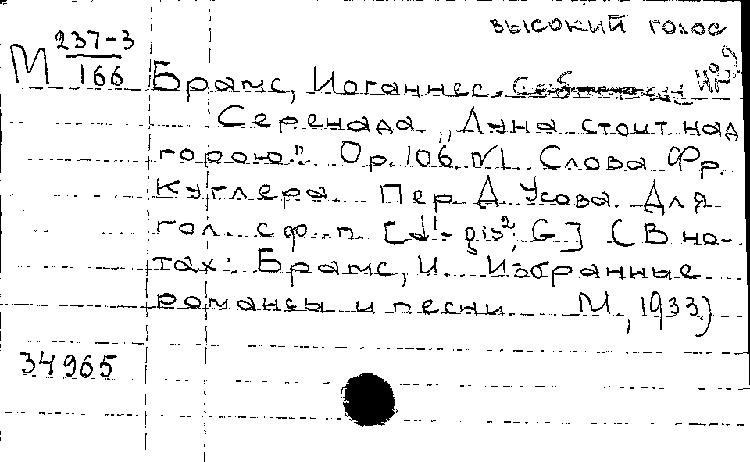 высокий голос
М 237-3
166
Брамс, Иоганнес.
Серенада „Луна стоит над
горою". Op. 106 №1. Слова Фр.
Куглера. Пер. Д. Усова. Для
гол. с ф.-п. [d¹-gis²; G] (В но-
тах: Брамс, И. Избранные
романсы и песни. М., 1933)
34965